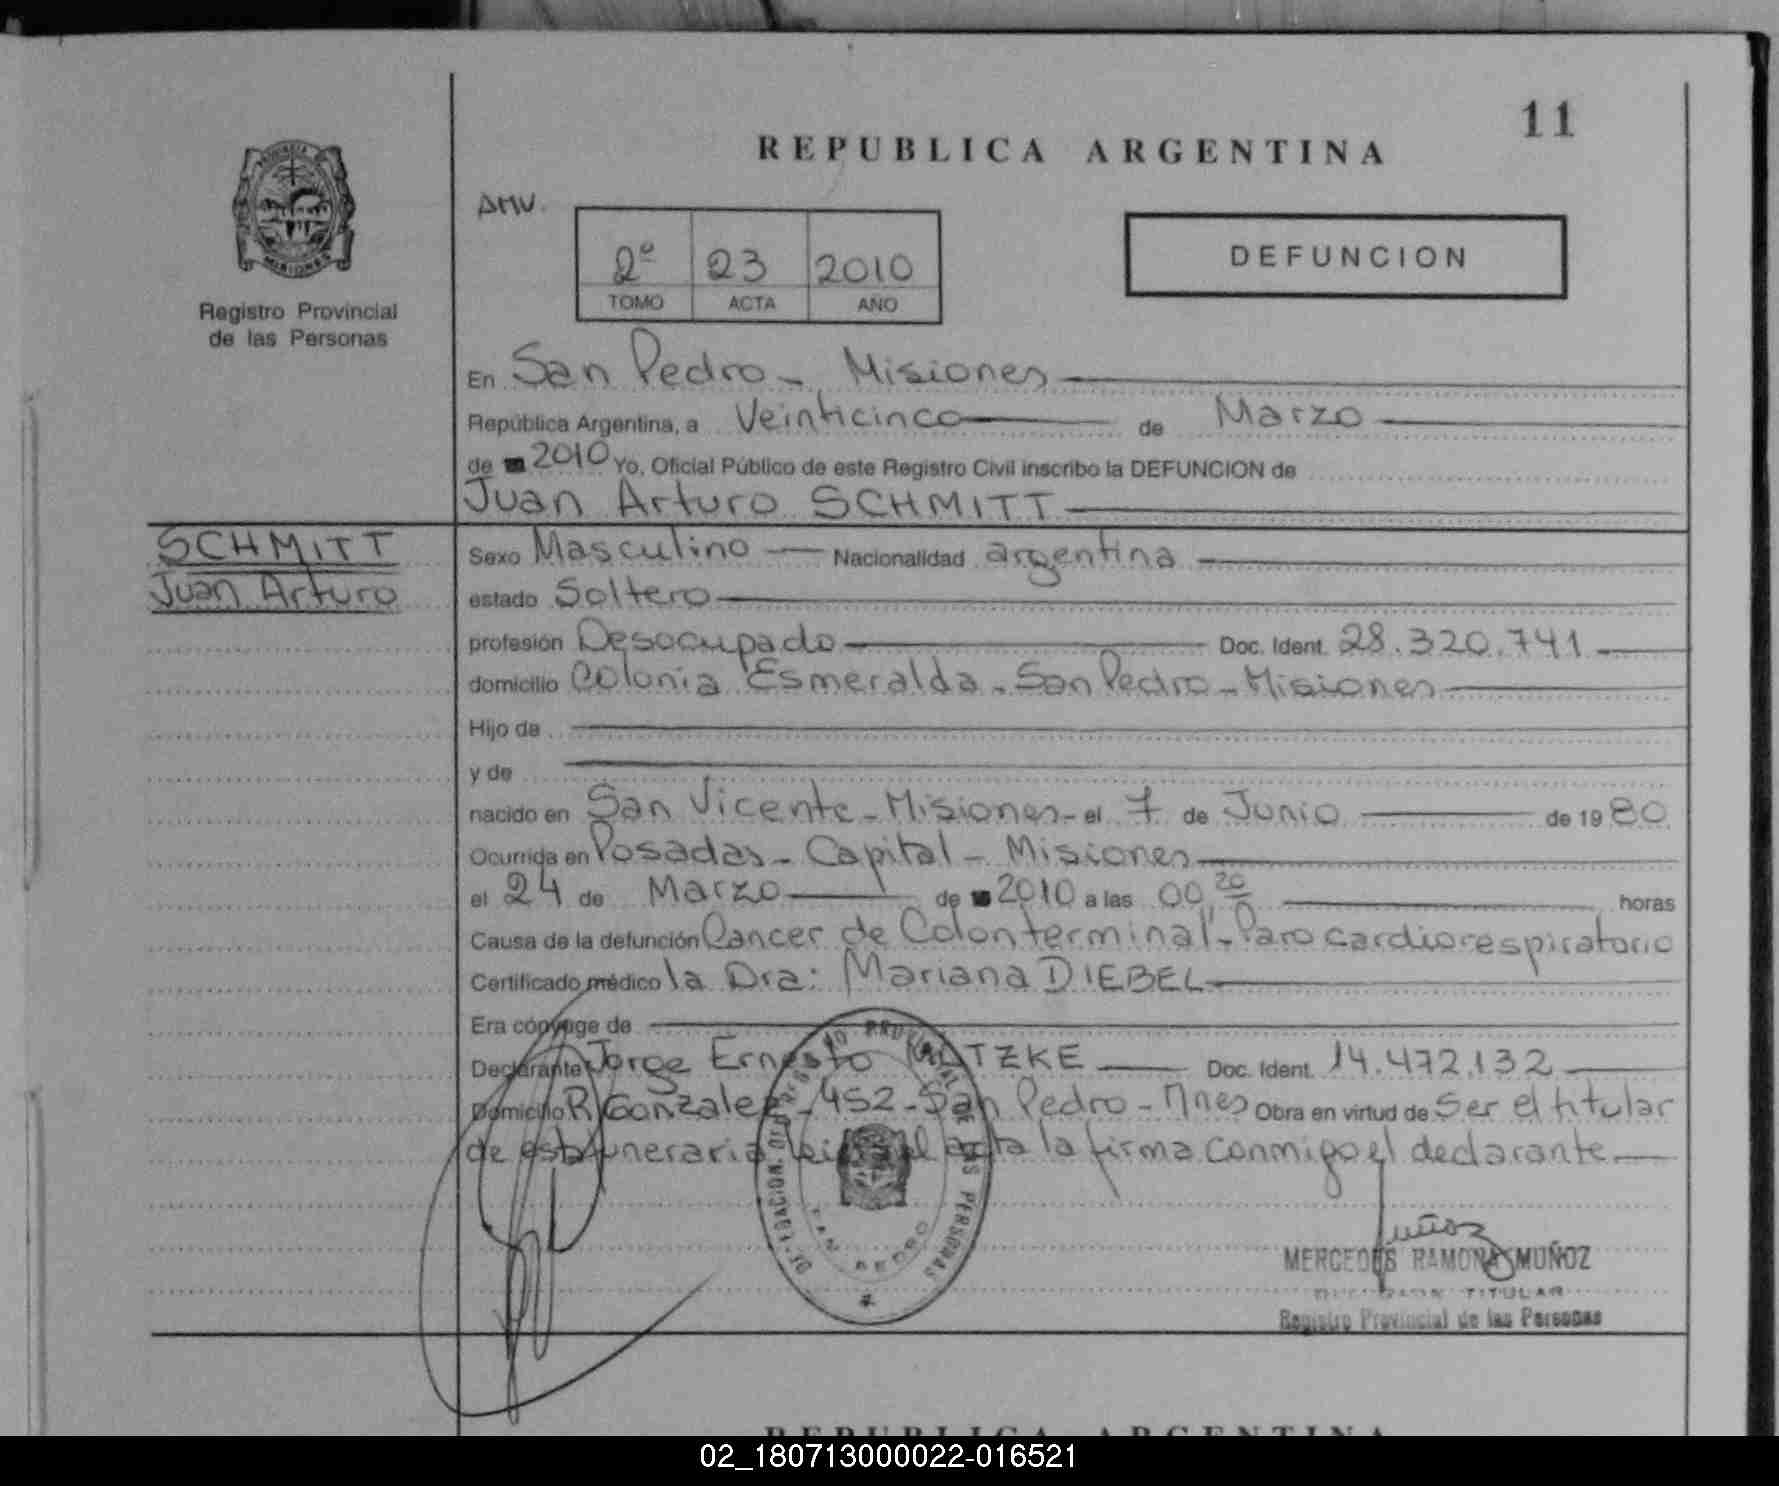 11
REPUBLICA ARGENTINA
AMV.
DEFUNCION
2º 23 2010
TOMO ACTA AÑO
PROVINCIA
MISIONES
Registro Provincial
de las Personas
En San Pedro - Misiones
República Argentina, a Veinticinco de Marzo
de 2010 Yo, Oficial Público de este Registro Civil inscribo la DEFUNCION de
Juan Arturo SCHMITT
SCHMITT
Juan Arturo
Sexo Masculino Nacionalidad argentina
estado Soltero
profesión Desocupado Doc. Ident. 28.320.741
domicilio Colonia Esmeralda - San Pedro - Misiones
Hijo de
y de
nacido en San Vicente - Misiones - el 7 de Junio de 1980
Ocurrida en Posadas - Capital - Misiones
el 24 de Marzo de 2010 a las 00,20 horas
Causa de la defunción Cancer de Colon terminal - Paro cardiorespiratorio
Certificado médico la Dra: Mariana DIEBEL
Era cónyuge de
Declarante Jorge Ernesto Doc. Ident. 14.472.132
Domicilio R. Gonzalez - 452 - San Pedro - Mnes Obra en virtud de Ser el titular
de esta funeraria leida el acta la firma conmigo el declarante
DELEGACION DEL REGISTRO PROVINCIAL DE LAS PERSONAS
SAN PEDRO
Muñoz
MERCEDES RAMONA MUÑOZ
TITULAR
Registro Provincial de las Personas
REPUBLICA ARGENTINA
02_180713000022-016521